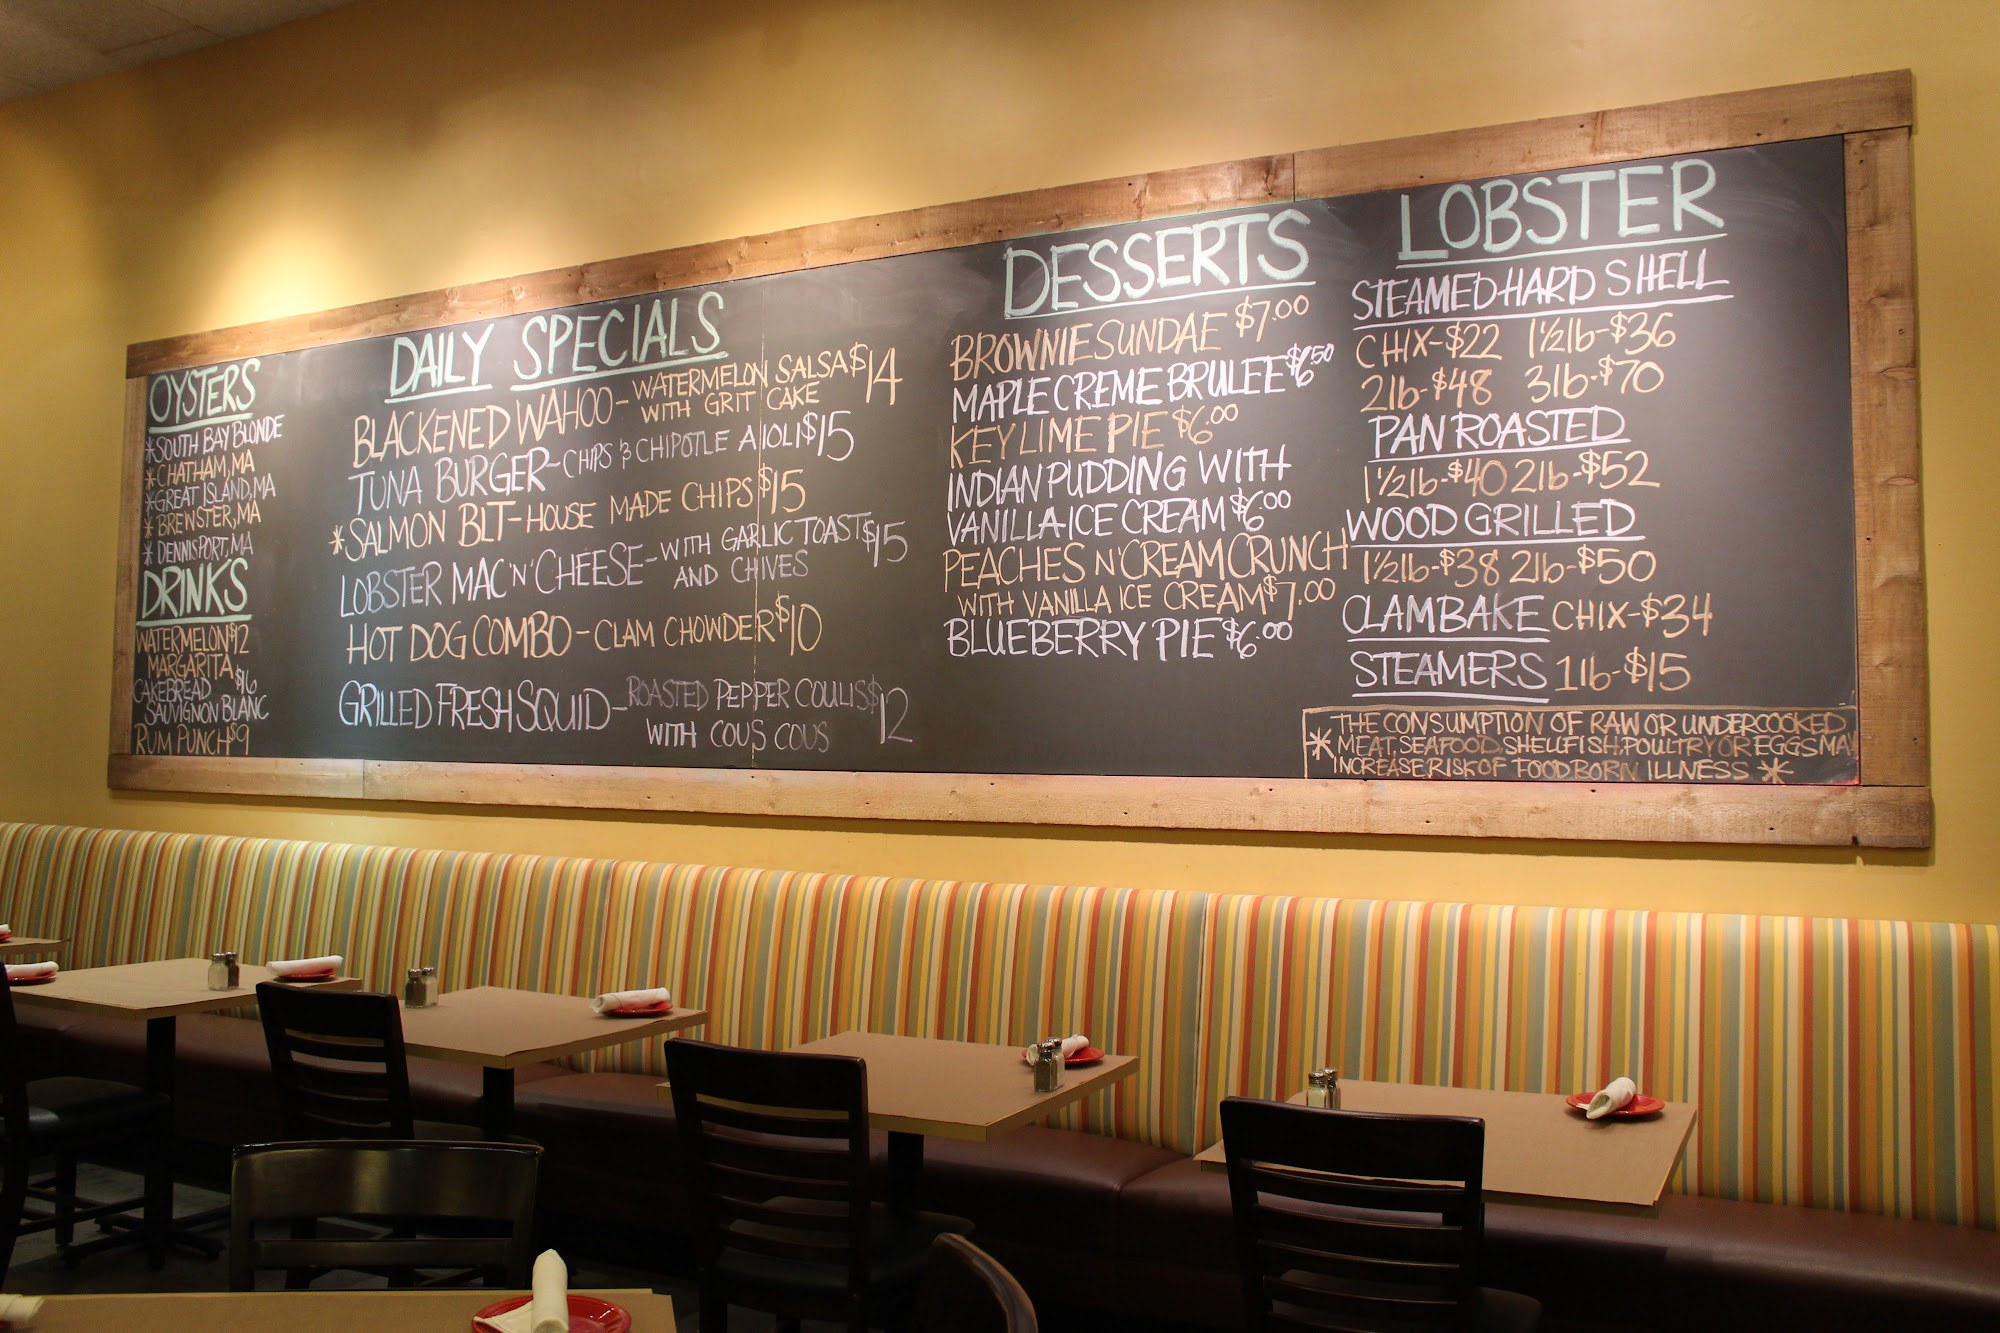 OYSTERS
*SOUTH BAY BLONDE
*CHATHAM, MA
*GREAT ISLAND, MA
*BREWSTER, MA
*DENNISPORT, MA
DRINKS
WATERMELON $12
MARGARITA
CAKEBREAD $16
SAUVIGNON BLANC
RUM PUNCH $9
DAILY SPECIALS
BLACKENED WAHOO - WATERMELON SALSA $14
WITH GRIT CAKE
TUNA BURGER - CHIPS & CHIPOTLE AIOLI $15
*SALMON BLT - HOUSE MADE CHIPS $15
LOBSTER MAC 'N' CHEESE - WITH GARLIC TOAST $15
AND CHIVES
HOT DOG COMBO - CLAM CHOWDER $10
GRILLED FRESH SQUID - ROASTED PEPPER COULIS $12
WITH COUS COUS
DESSERTS
BROWNIE SUNDAE $7.00
MAPLE CREME BRULEE $6.50
KEY LIME PIE $6.00
INDIAN PUDDING WITH
VANILLA ICE CREAM $6.00
PEACHES N' CREAM CRUNCH
WITH VANILLA ICE CREAM $7.00
BLUEBERRY PIE $6.00
LOBSTER
STEAMED HARD SHELL
CHIX - $22 1½lb - $36
2lb - $48 3lb - $70
PAN ROASTED
1½lb - $40 2lb - $52
WOOD GRILLED
1½lb - $38 2lb - $50
CLAMBAKE CHIX - $34
STEAMERS 1lb - $15
THE CONSUMPTION OF RAW OR UNDERCOOKED
* MEAT, SEAFOOD, SHELLFISH, POULTRY OR EGGS MAY
INCREASE RISK OF FOOD BORN ILLNESS *